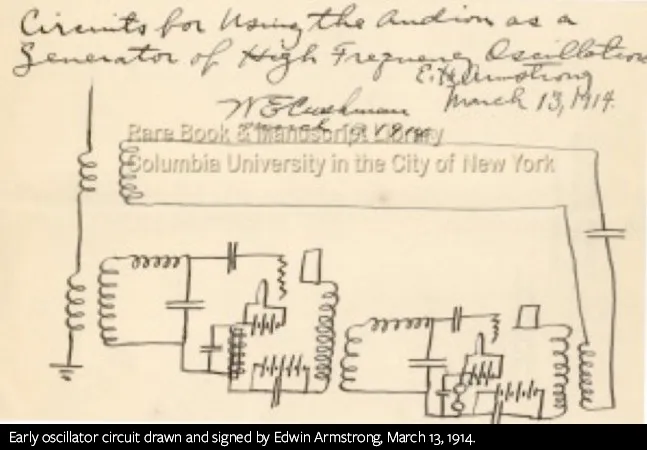 Circuits for Using the Audion as a
Generator of High Frequency Oscillations
E.H. Armstrong
March 13, 1914.
Rare Book & Manuscript Library
Columbia University in the City of New York
Early oscillator circuit drawn and signed by Edwin Armstrong, March 13, 1914.